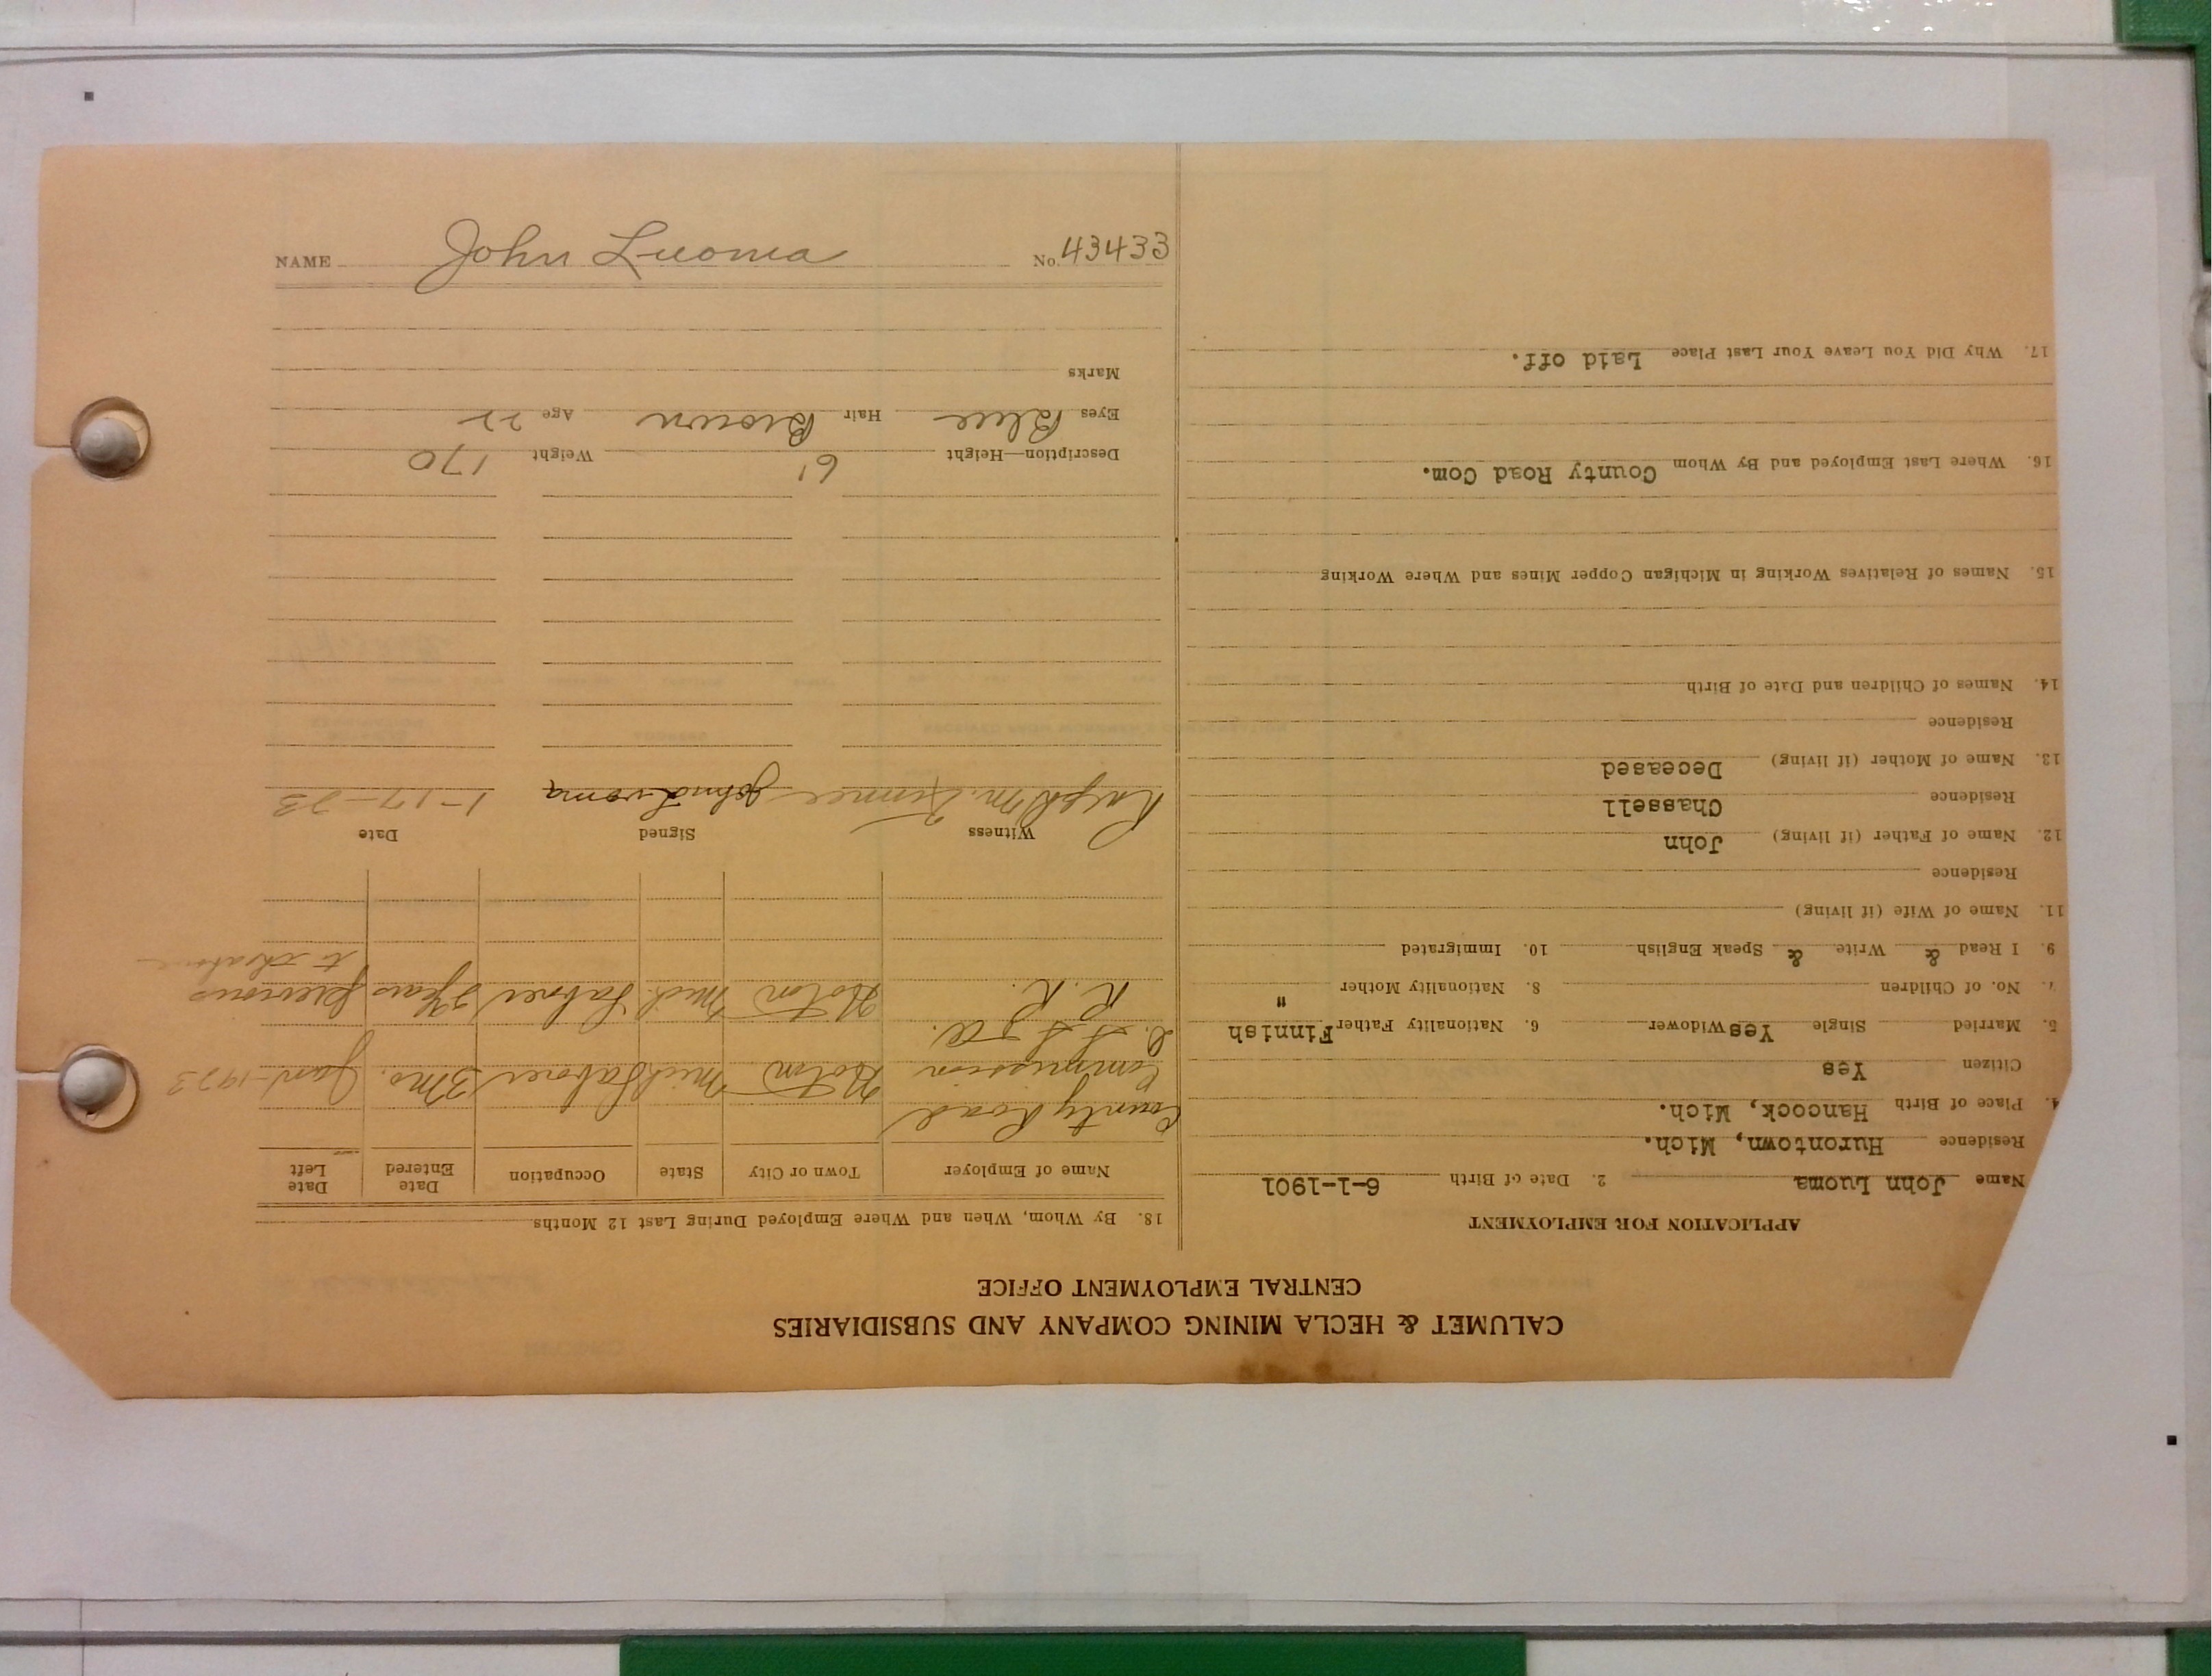 NAME John Luoma No. 43433
CALUMET & HECLA MINING COMPANY AND SUBSIDIARIES
CENTRAL EMPLOYMENT OFFICE
APPLICATION FOR EMPLOYMENT
Name John Luoma 2. Date of Birth 6-1-1901
Residence Hurontown, Mich.
4. Place of Birth Hancock, Mich.
Citizen Yes
5. Married Single Yes Widower 6. Nationality Father Finnish
7. No. of Children 8. Nationality Mother "
9. I Read & Write & Speak English 10. Immigrated
11. Name of Wife (if living)
Residence
12. Name of Father (if living) John
Residence Chassell
13. Name of Mother (if living) Deceased
Residence
14. Names of Children and Date of Birth
15. Names of Relatives Working in Michigan Copper Mines and Where Working
16. Where Last Employed and By Whom County Road Com.
17. Why Did You Leave Your Last Place Laid off.
18. By Whom, When and Where Employed During Last 12 Months
Name of Employer Town or City State Occupation Date Entered Date Left
County Road
Commission Hoton Mich Laborer 3 Mo. Jan-1923
R. R. Hoton Mich. Laborer 3 Years previous
to above
Witness Signed Date
Ralph M. John Luoma 1-17-23
Description—Height 6' Weight 170
Eyes Blue Hair Brown Age 22
Marks